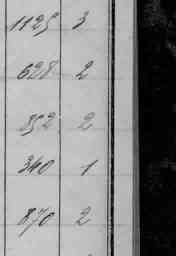 1125 3
628 2
852 2
340 1
870 2